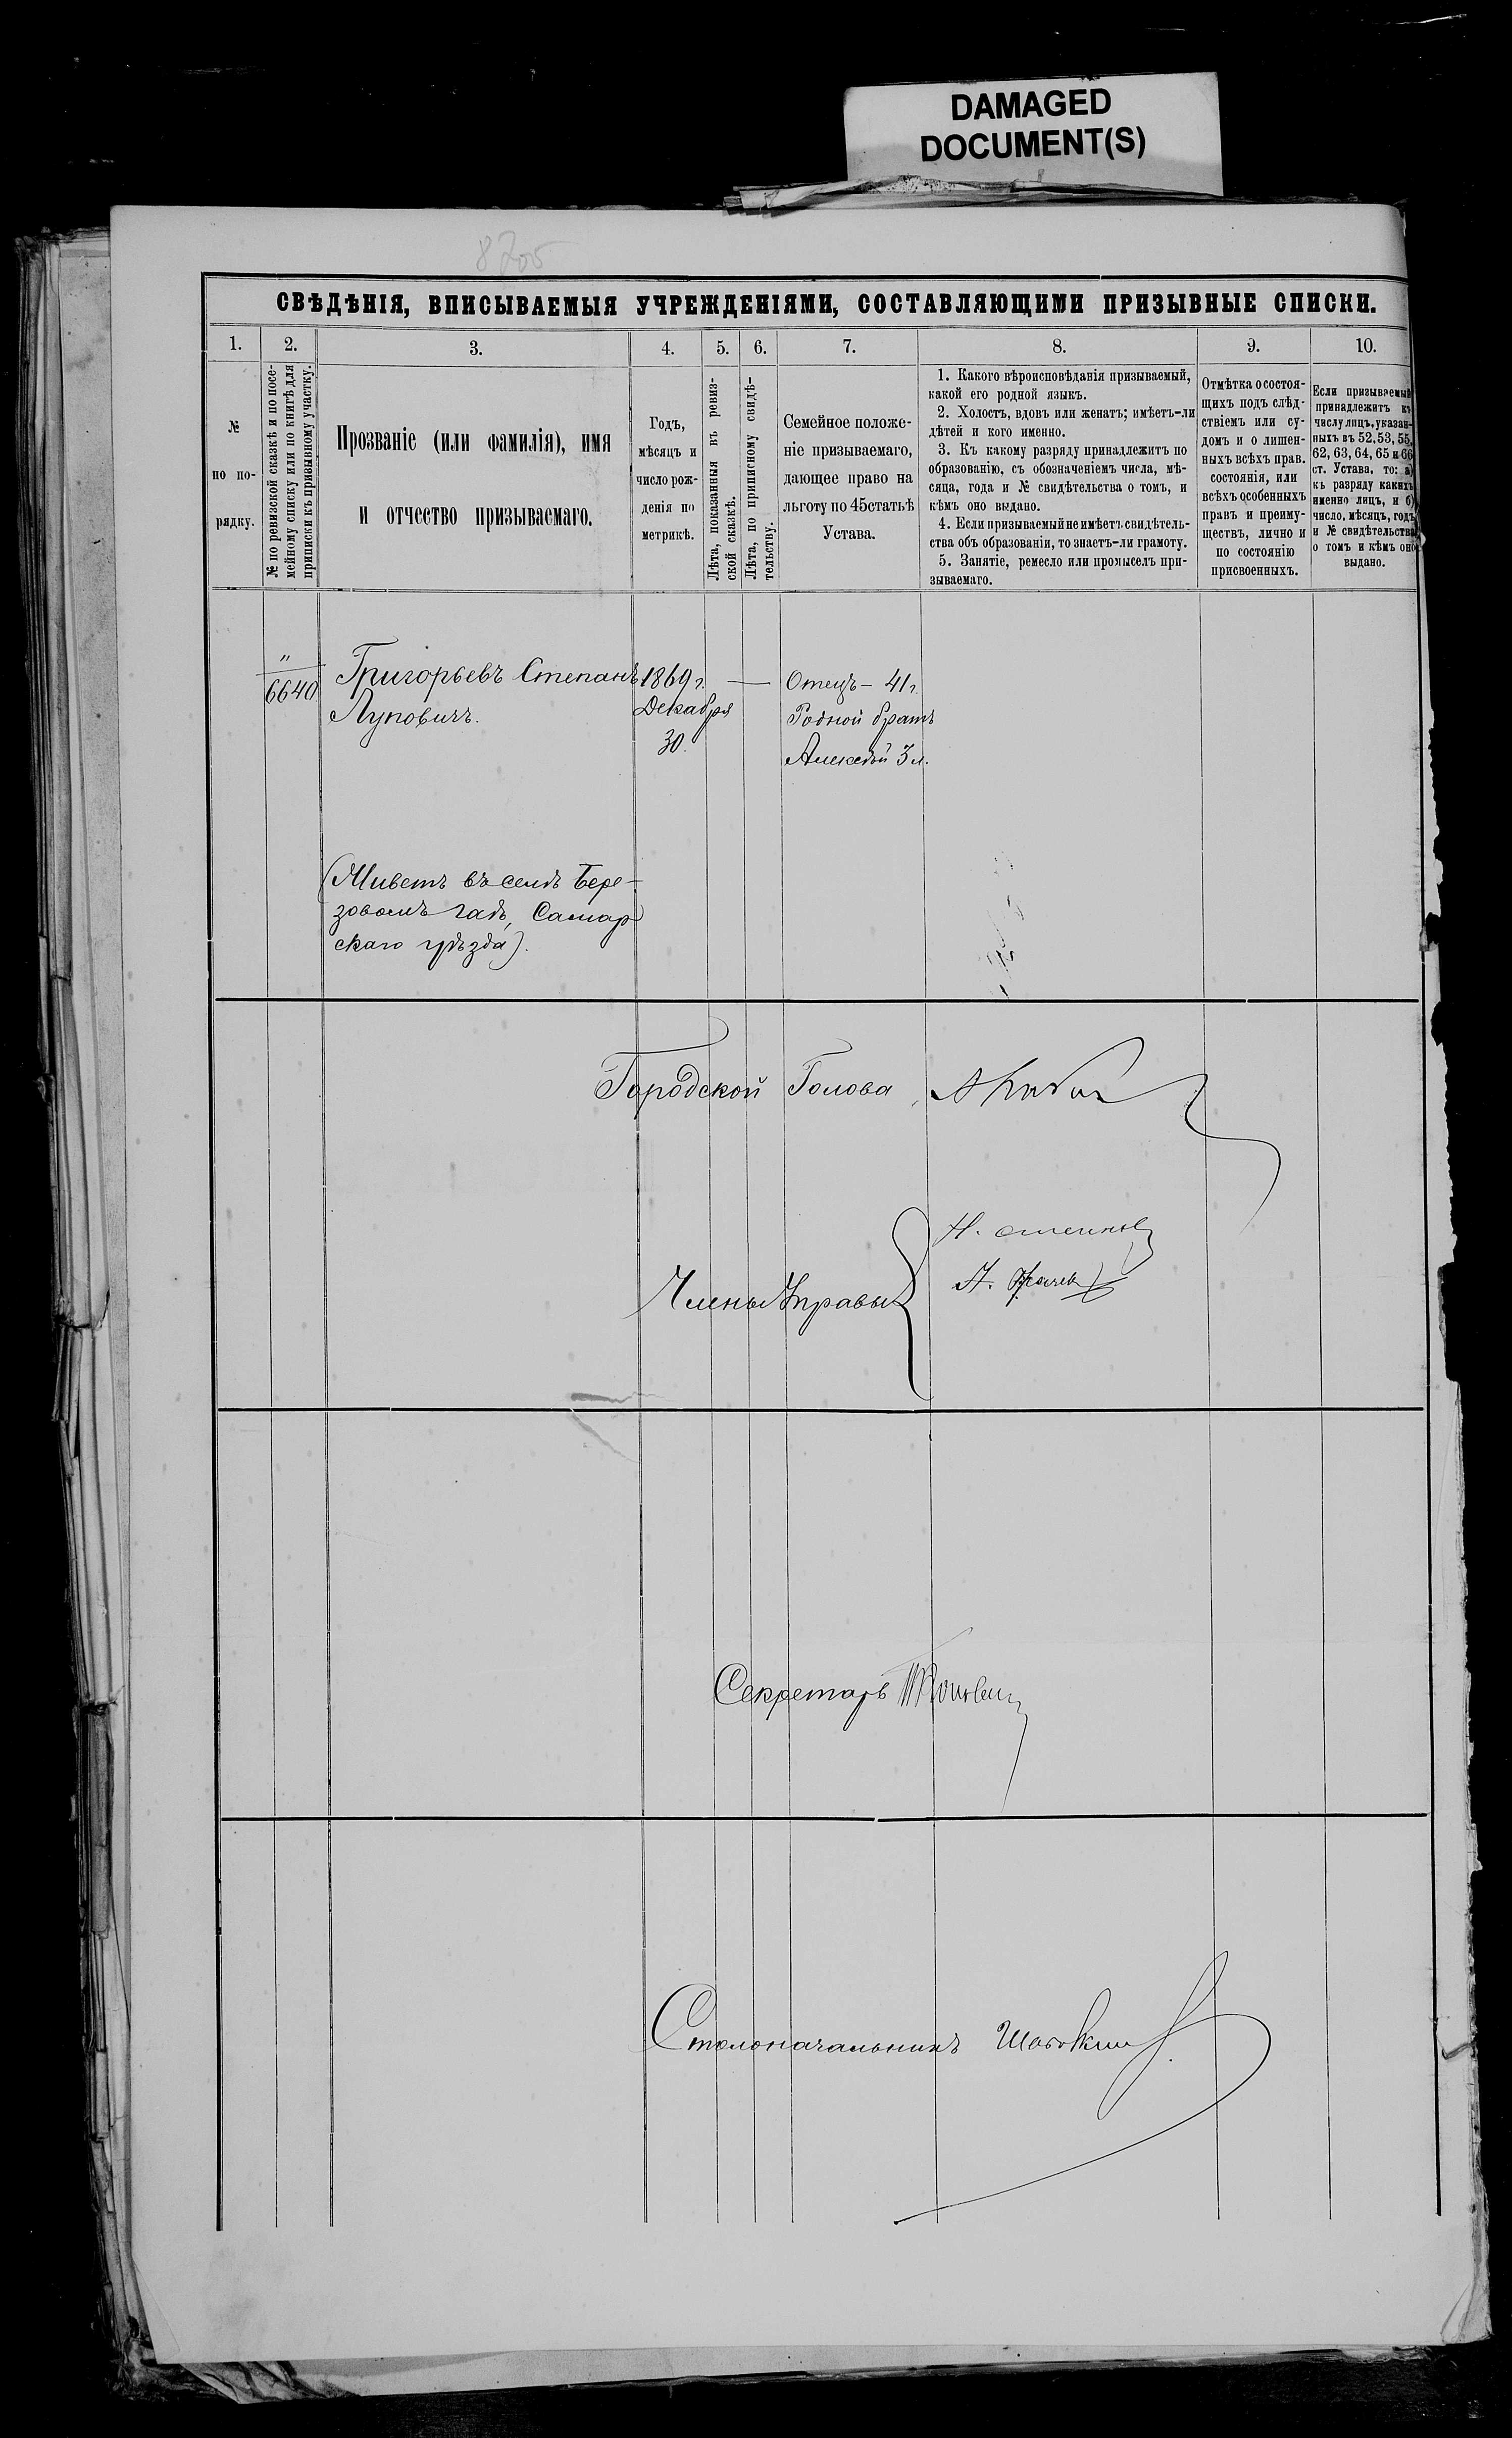 DAMAGED
DOCUMENT(S)
СВѢДѢНІЯ, ВПИСЫВАЕМЫЯ УЧРЕЖДЕНІЯМИ, СОСТАВЛЯЮЩИМИ ПРИЗЫВНЫЕ СПИСКИ.
1.
2.
3.
4.
5.
6.
7.
8.
9.
10.
№
по по-
рядку.
№ по ревизской сказкѣ и по посе-
мейному списку или по книгѣ для
приписки къ призывному участку.
Прозваніе (или фамилія), имя
и отчество призываемаго.
Годъ,
мѣсяцъ и
число рож-
денія по
метрикѣ.
Лѣта, показанныя въ ревиз-
ской сказкѣ.
Лѣта, по приписному свидѣ-
тельству.
Семейное положе-
ніе призываемаго,
дающее право на
льготу по 45статьѣ
Устава.
1. Какого вѣроисповѣданія призываемый,
какой его родной языкъ.
2. Холостъ, вдовъ или женатъ; имѣетъ-ли
дѣтей и кого именно.
3. Къ какому разряду принадлежитъ по
образованію, съ обозначеніемъ числа, мѣ-
сяца, года и № свидѣтельства о томъ, и
кѣмъ оно выдано.
4. Если призываемый не имѣетъ свидѣтель-
ства объ образованіи, то знаетъ-ли грамоту.
5. Занятіе, ремесло или промыселъ при-
зываемаго.
Отмѣтка о состоя-
щихъ подъ слѣд-
ствіемъ или су-
домъ и о лишен-
ныхъ всѣхъ прав.
состоянія, или
всѣхъ особенныхъ
правъ и преиму-
ществъ, лично и
по состоянію
присвоенныхъ.
Если призываемый
принадлежитъ къ
числу лицъ, указан-
ныхъ въ 52, 53, 55,
62, 63, 64, 65 и 66
ст. Устава, то: а)
къ разряду какихъ
именно лицъ, и б)
число, мѣсяцъ, годъ
и № свидѣтельства
о томъ и кѣмъ оно
выдано.
"
6640
Григорьевъ Степанъ
Луповичъ.
1869 г.
Декабря
30.
—
Отецъ – 41 г.
Родной братъ
Алексѣй 3 л.
(Живетъ въ селѣ Бере-
зовомъ Гаѣ, Самар
скаго уѣзда).
Городской Голова
Члены Управы
Секретарь
Столоначальникъ